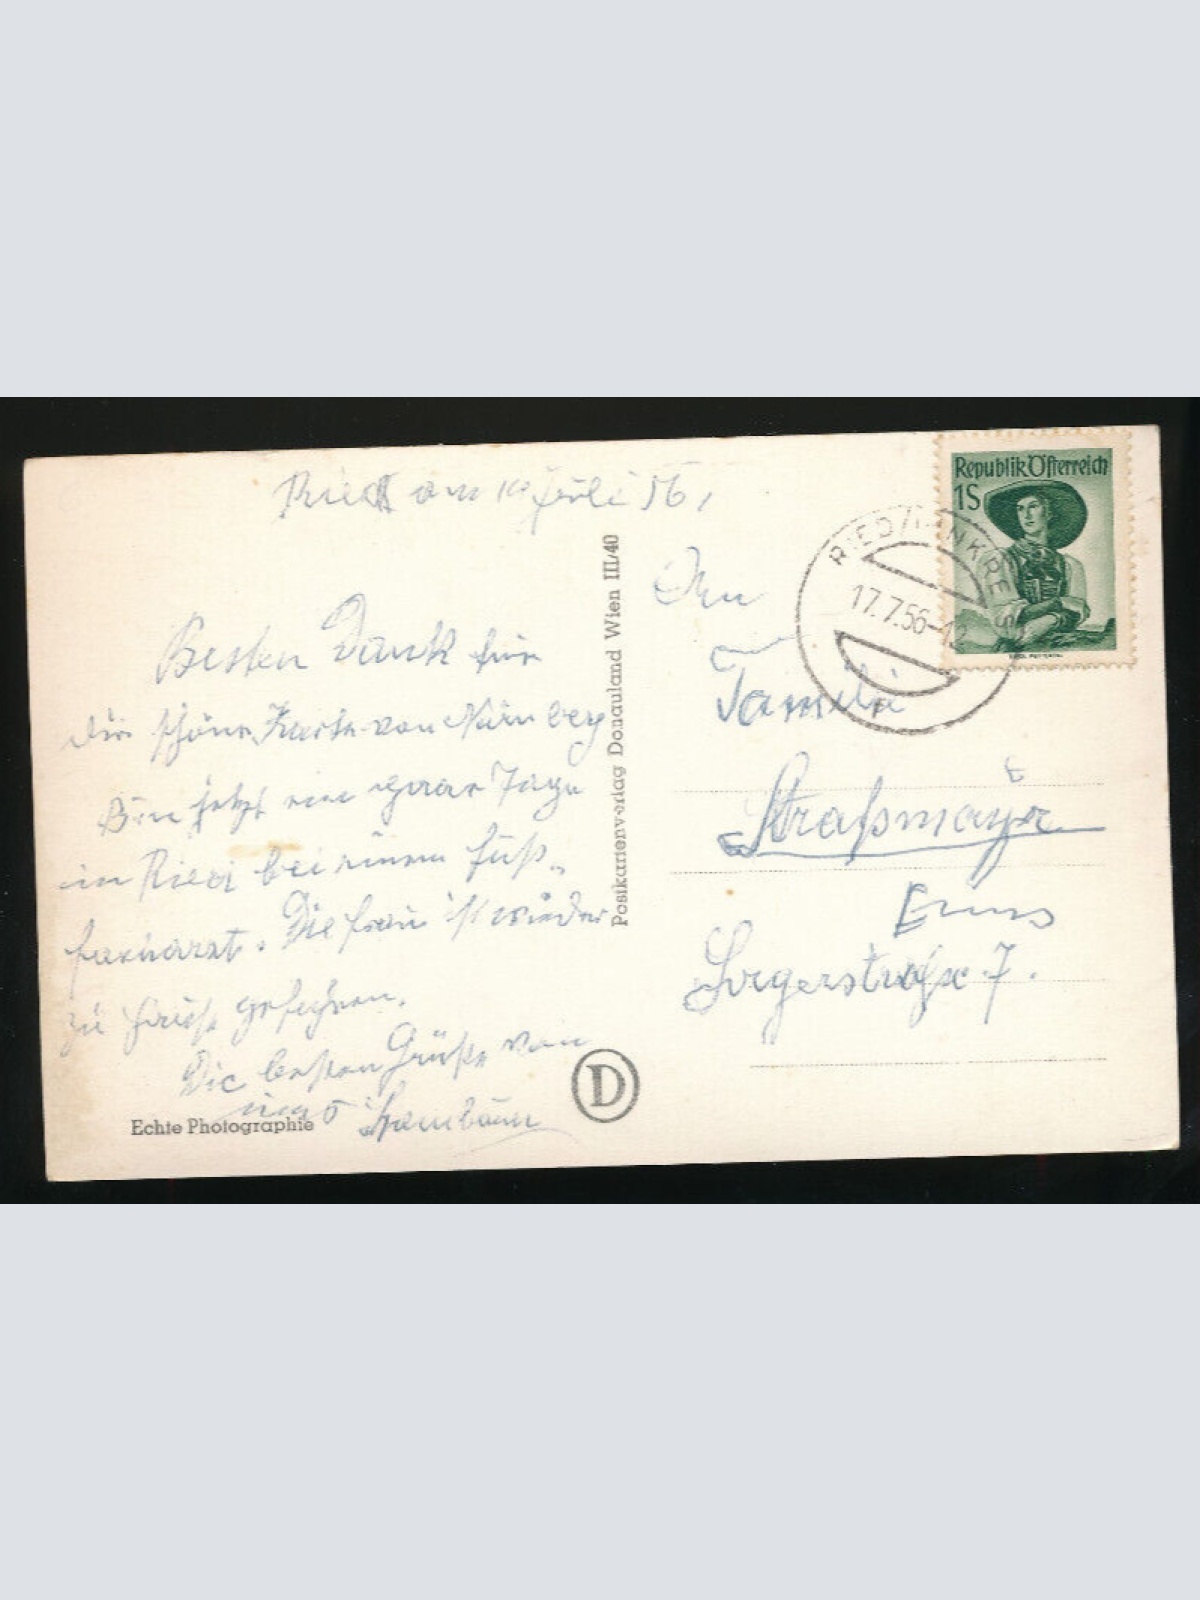 Ried am Juli 56,
Besten Dank für
die schöne Karte von Nürnberg
Bin jetzt ein paar Tage
in Ried bei einem Fuß-
facharzt. Die Frau ist wieder
zu Hause gefahren.
Die besten Grüße von
Echte Photographie
D
Postkartenverlag Donauland Wien III/40
Republik Österreich
1S
RIED/INNKREIS
17.7.56-12
An
Familie
Straßmayr
Enns
Sorgerstraße 7.